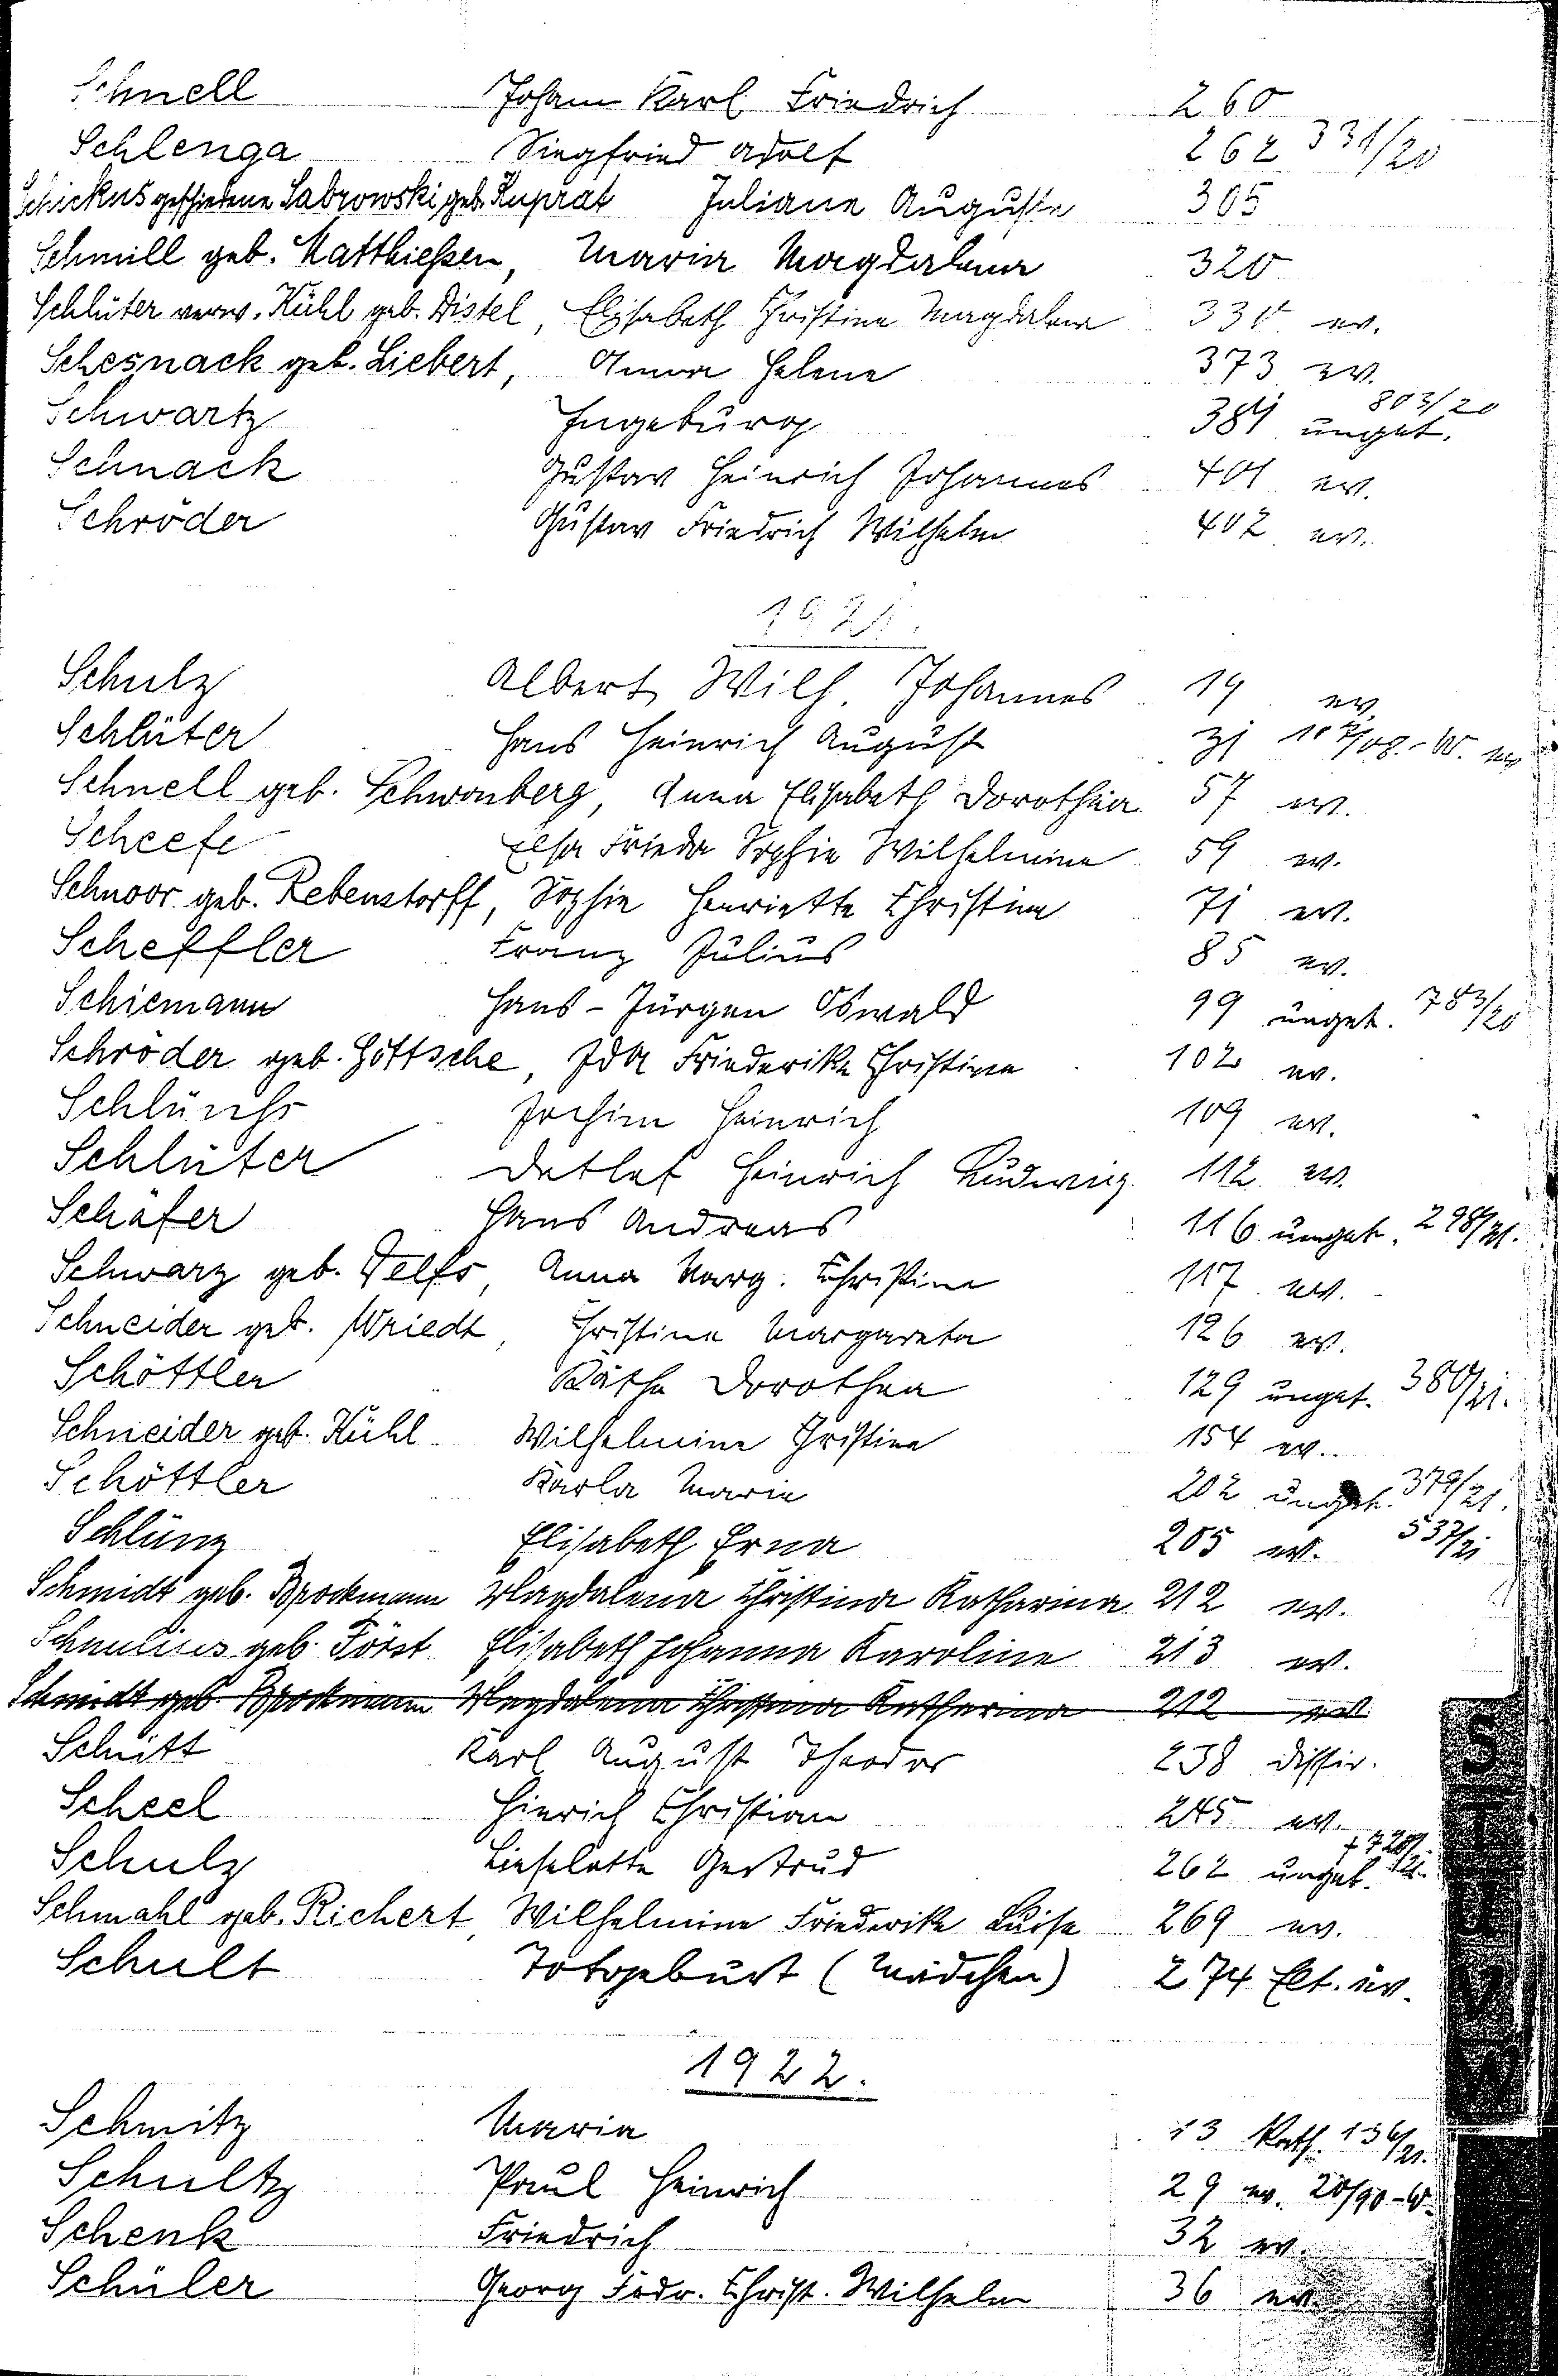 Schnell Johann Karl Friedrich 260
Schlenga Siegfried Adolf 262 331/20
Schickus geschiedene Sabrowski, geb. Kuprat Juliane Auguste 305
Schmill geb. Matthießen, Maria Magdalena 320
Schlüter verw. Kühl geb. Distel, Elisabeth Christine Magdalena 330 ev.
Schesnack geb. Liebert, Anna Helene 373 ev.
Schwartz Ingeburg 381 unget. 803/20
Schnack Gustav Heinrich Johannes 401 ev.
Schröder Gustav Friedrich Wilhelm 402 ev.
1921.
Schulz Albert Wilh. Johannes 19 ev.
Schlüter Hans Heinrich August 31 107/08.-W. ev.
Schnell geb. Schwonberg, Anna Elisabeth Dorothea 57 ev.
Scheefe Elsa Frieda Sophie Wilhelmine 59 ev.
Schnoor geb. Rebenstorff, Sophie Henriette Christine 71 ev.
Scheffler Franz Julius 85 ev.
Schiemann Hans-Jürgen Oswald 99 unget. 783/20
Schröder geb. Göttsche, Ida Friederike Christine 102 ev.
Schlünß Jochim Heinrich 109 ev.
Schlüter Detlef Heinrich Ludwig 112 ev.
Schäfer Hans Andreas 116 unget. 298/21.
Schwarz geb. Delfs, Anna Marg. Christine 117 ev.
Schneider geb. Wriedt, Christine Margareta 126 ev.
Schöttler Käthe Dorothea 129 unget. 380/21.
Schneider geb. Kühl Wilhelmine Christine 154 ev.
Schöttler Karla Marie 202 unget. 379/21.
Schlünz Elisabeth Erna 205 ev. 537/21
Schmidt geb. Brockmann Magdalena Christina Katharina 212 ev.
geb. Först Elisabeth Johanna Karoline 213 ev.
Schmidt geb. Brockmann Magdalena Christina Katharina 212 ev.
Schütt Karl August Theodor 238 dissid.
Scheel Hinrich Christian 245 ev.
Schulz Lieselotte Gertrud 262 unget. +720/21.
Schmahl geb. Richert, Wilhelmine Friederike Luise 269 ev.
Schult Totgeburt (Mädchen) 274 Elt. ev.
1922.
Schmitz Maria 13 kath. 136/21.
Schultz Paul Heinrich 29 ev. 20/90-W.
Schenk Friedrich 32 ev.
Schüler Georg Frdr. Christ. Wilhelm 36 ev.
S
T
U
V
W